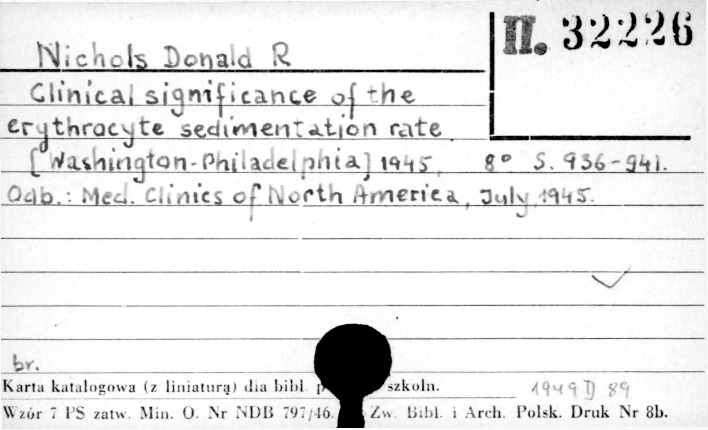 II. 32226
Nichols Donald R
Clinical significance of the
erythrocyte sedimentation rate
[Washington-Philadelphia] 1945, 8° S. 936-941.
Odb.: Med. Clinics of North America, July, 1945.
br.
Karta katalogowa (z liniaturą) dla bibl. szkoln. 1949 D 89
Wzór 7 PS zatw. Min. O. Nr NDB 797/46. Zw. Bibl. i Arch. Polsk. Druk Nr 8b.